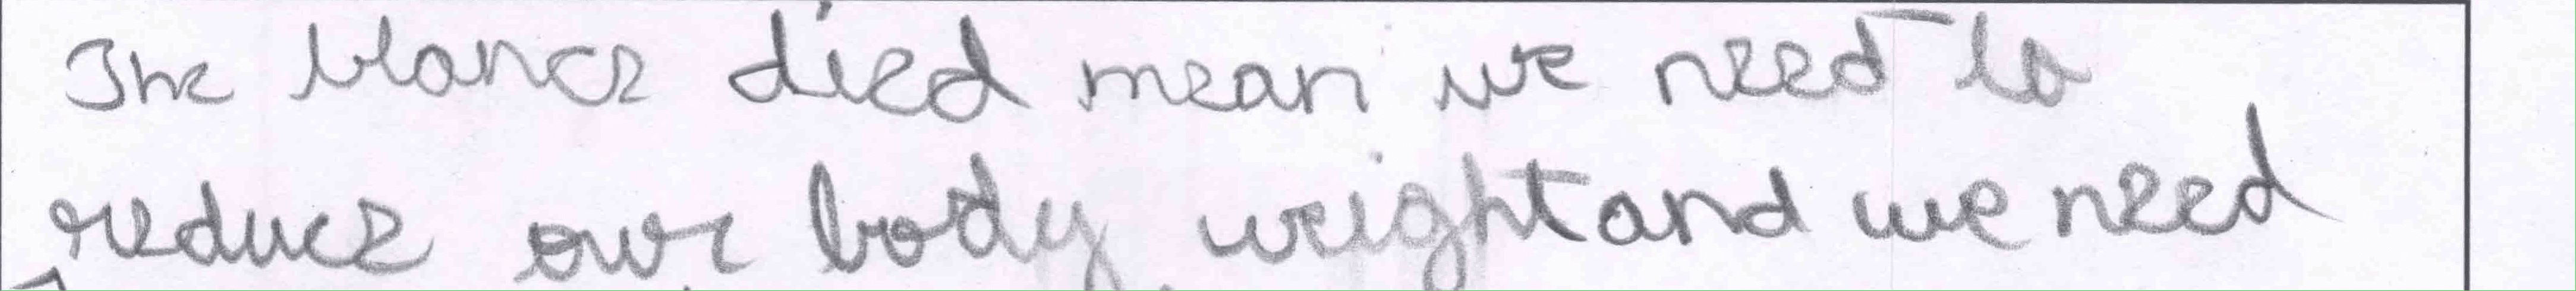 The blance died mean we need to
reduce our body weight and we need